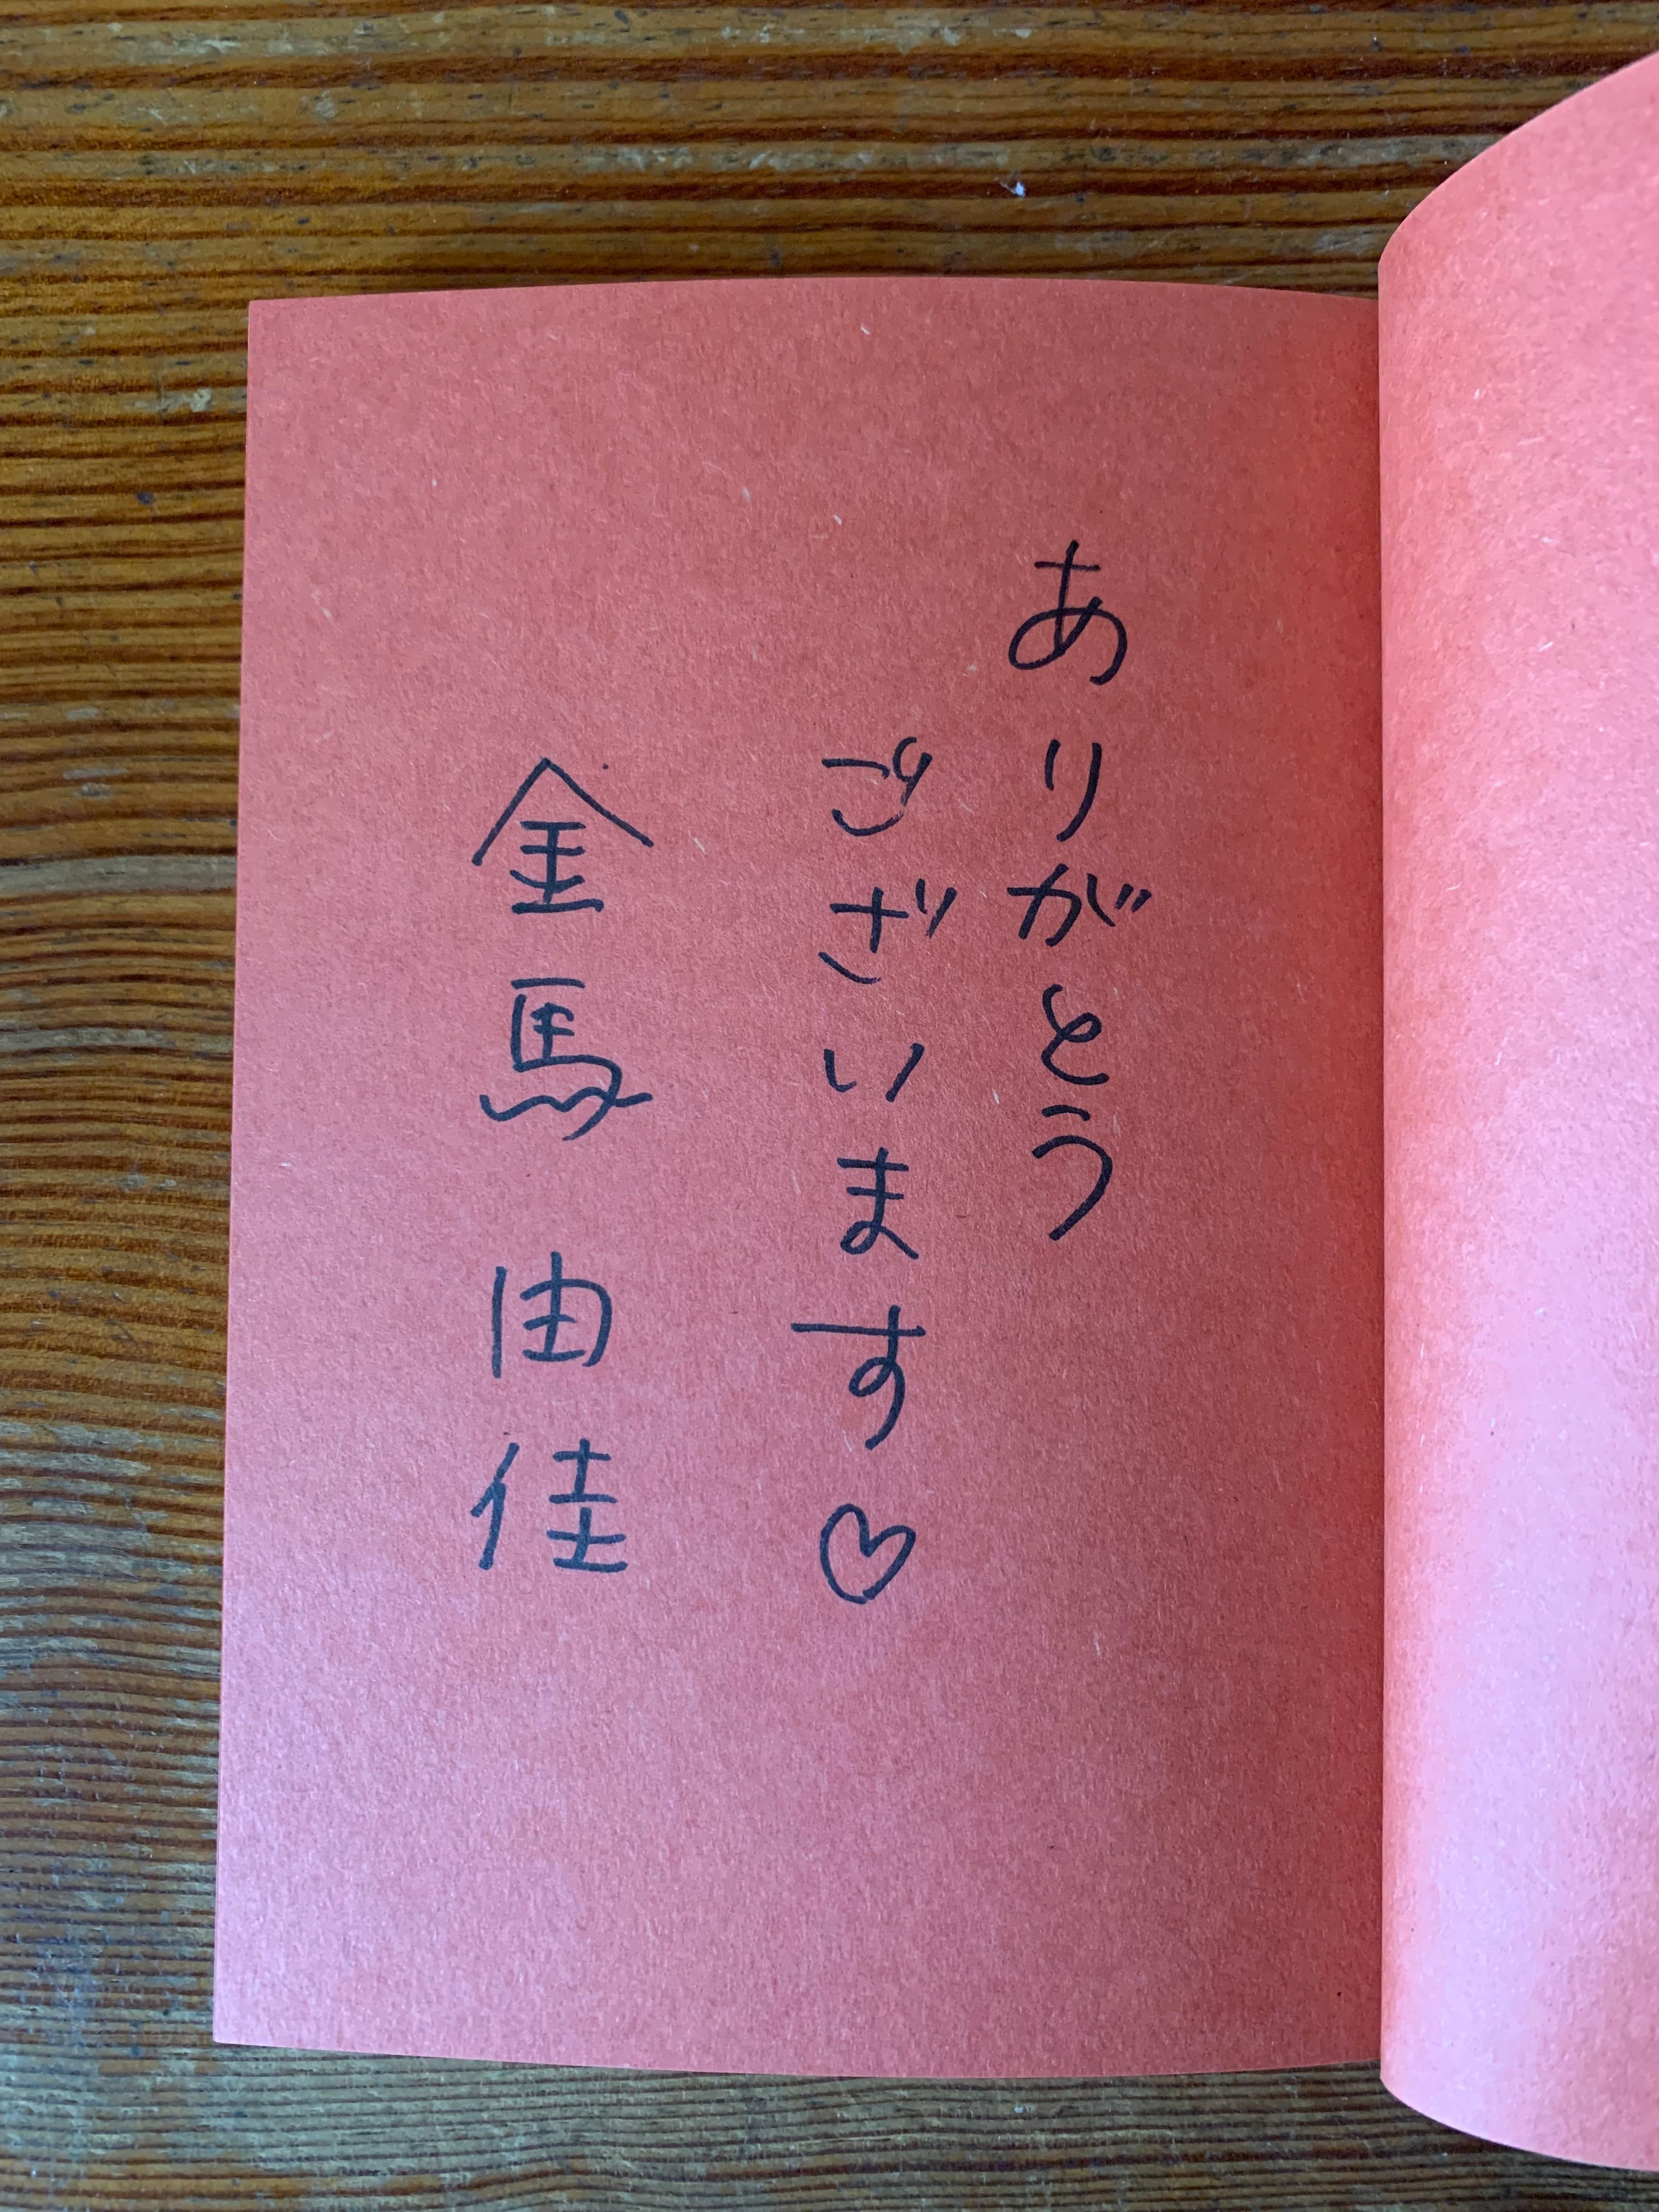 ありがとう
ございます♡
金馬由佳